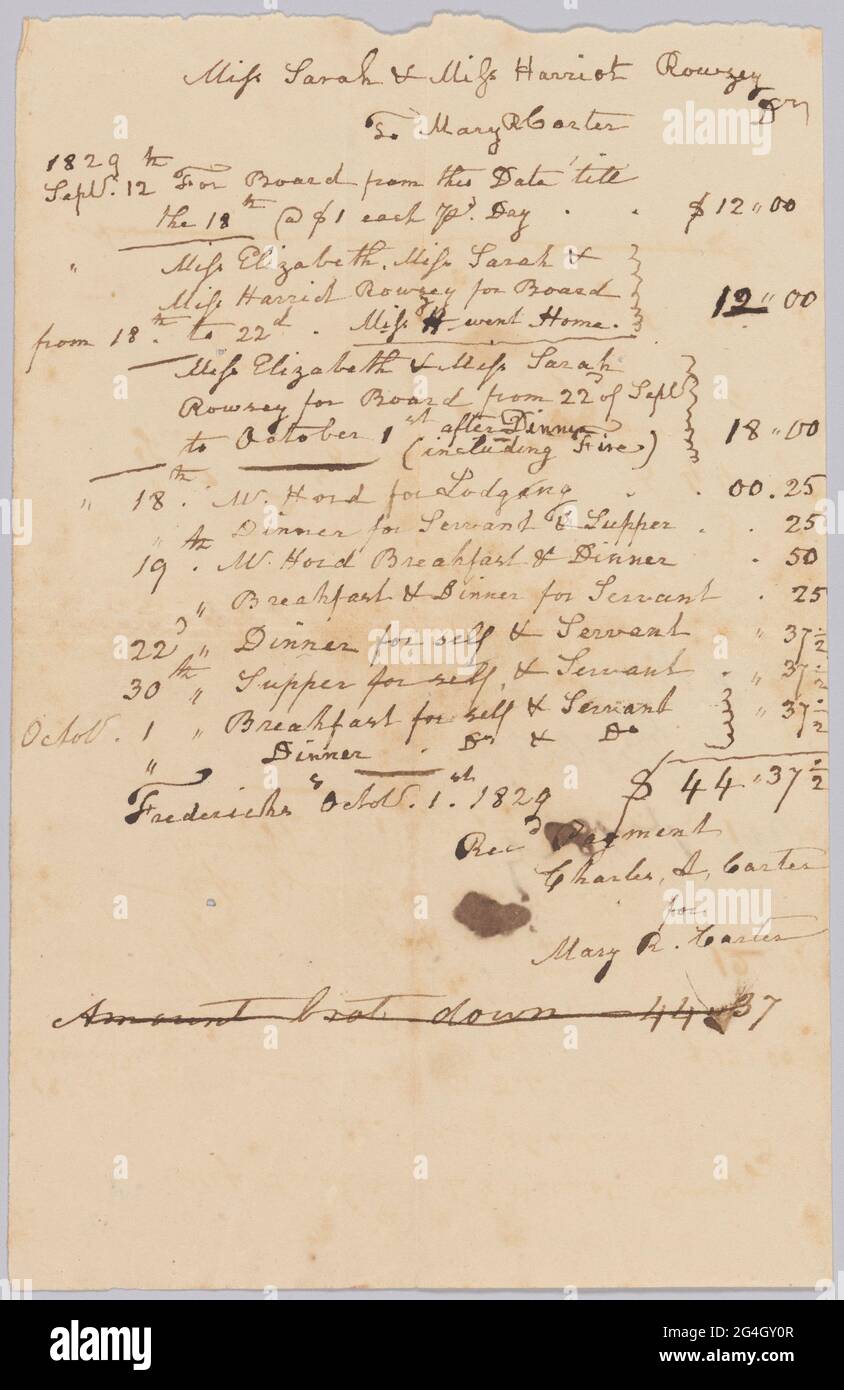 Miss Sarah & Miss Harriot Rowzey
Dr
To Mary R Carter
1829
Septr. 12th For Board from this Date 'till
the 18th @ $1 each pr. Day . . $12"00
" Miss Elizabeth, Miss Sarah &
Miss Harriot Rowzey for Board
from 18th. to 22d . Miss H went Home. 12"00
Miss Elizabeth & Miss Sarah
Rowzey for Board from 22d of Septr
to October 1st after Dinner
(including Fire) 18"00
" 18th. W. Hord for Lodging . . 00.25
" Dinner for Servant & Supper . . 25
19th. W. Hord Breakfast & Dinner . 50
" Breakfast & Dinner for Servant . 25
22d " Dinner for self & Servant " 37½
30th " Supper for self, & Servant . " 37½
Octobr. 1 " Breakfast for self & Servant " 37½
" Dinner . Do & Do
$ 44"37½
Fredericks"g Octobr. 1st. 1829
Recd Payment
Charles, A, Carter
for
Mary R. Carter
Amount brot. down 44"37
alamy
a
Image ID: 2G4GY0R
www.alamy.com